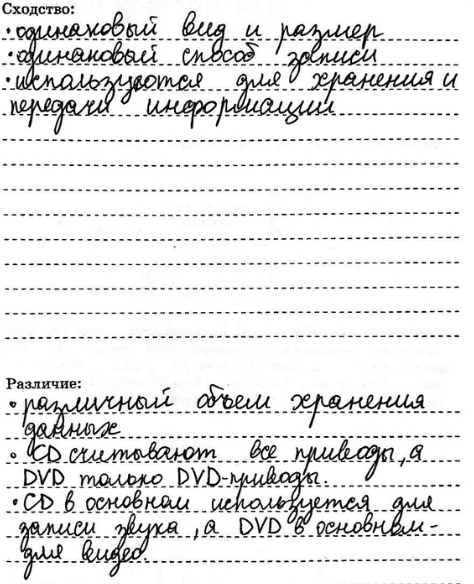 Сходство:
•одинаковый вид и размер
•одинаковый способ записи
•используются для хранения и
передачи информации
Различие:
• различный объем хранения
данных
• CD считывают все приводы, а
DVD только DVD-приводы.
•CD в основном используется для
записи звука, а DVD в основном-
для видео.